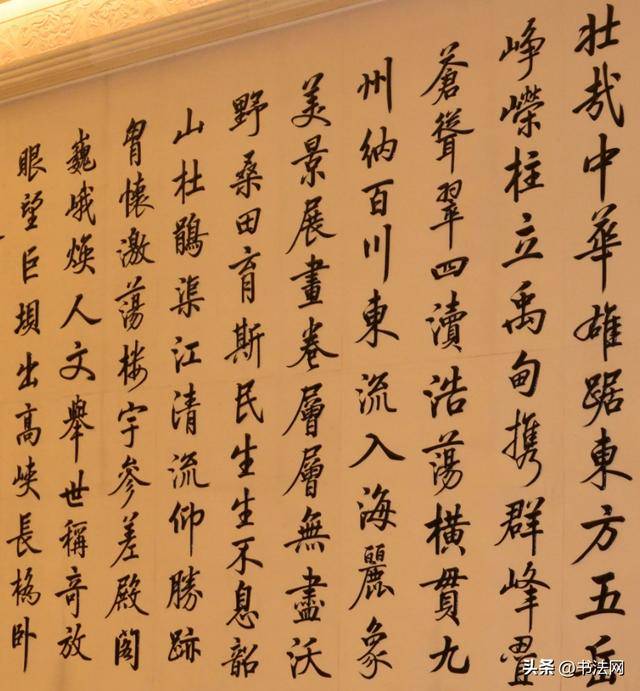 壮哉中華雄踞東方五岳
峥嶸柱立禹甸携群峰疊
蒼聳翠四瀆浩蕩横貫九
州納百川東流入海麗象
美景展畫卷層層無盡沃
野桑田育斯民生生不息韶
山杜鵑渠江清流仰勝跡
胷懷激蕩楼宇參差殿閣
巍峨焕人文舉世稱奇放
眼望巨壩出高峡長橋卧
头条 @书法网